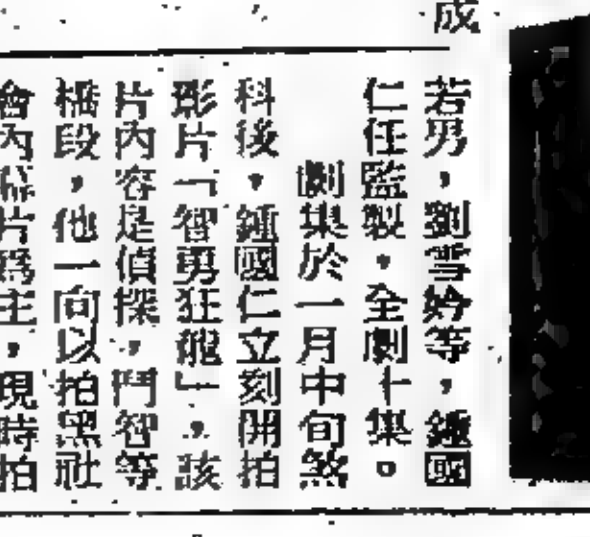 成
若男，劉雪妗等，鍾國
仁任監製，全劇十集。
劇集於一月中旬煞
科後，鍾國仁立刻開拍
影片「智勇狂龍」，該
片內容是偵探，鬥智等
橋段，他一向以拍黑社
會內幕片爲主，現時拍